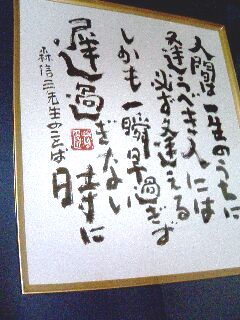 人間は一生のうちに
逢うべき人には
必ず逢える
しかも一瞬早過ぎず
遅過ぎない
時に
森信三先生のことば